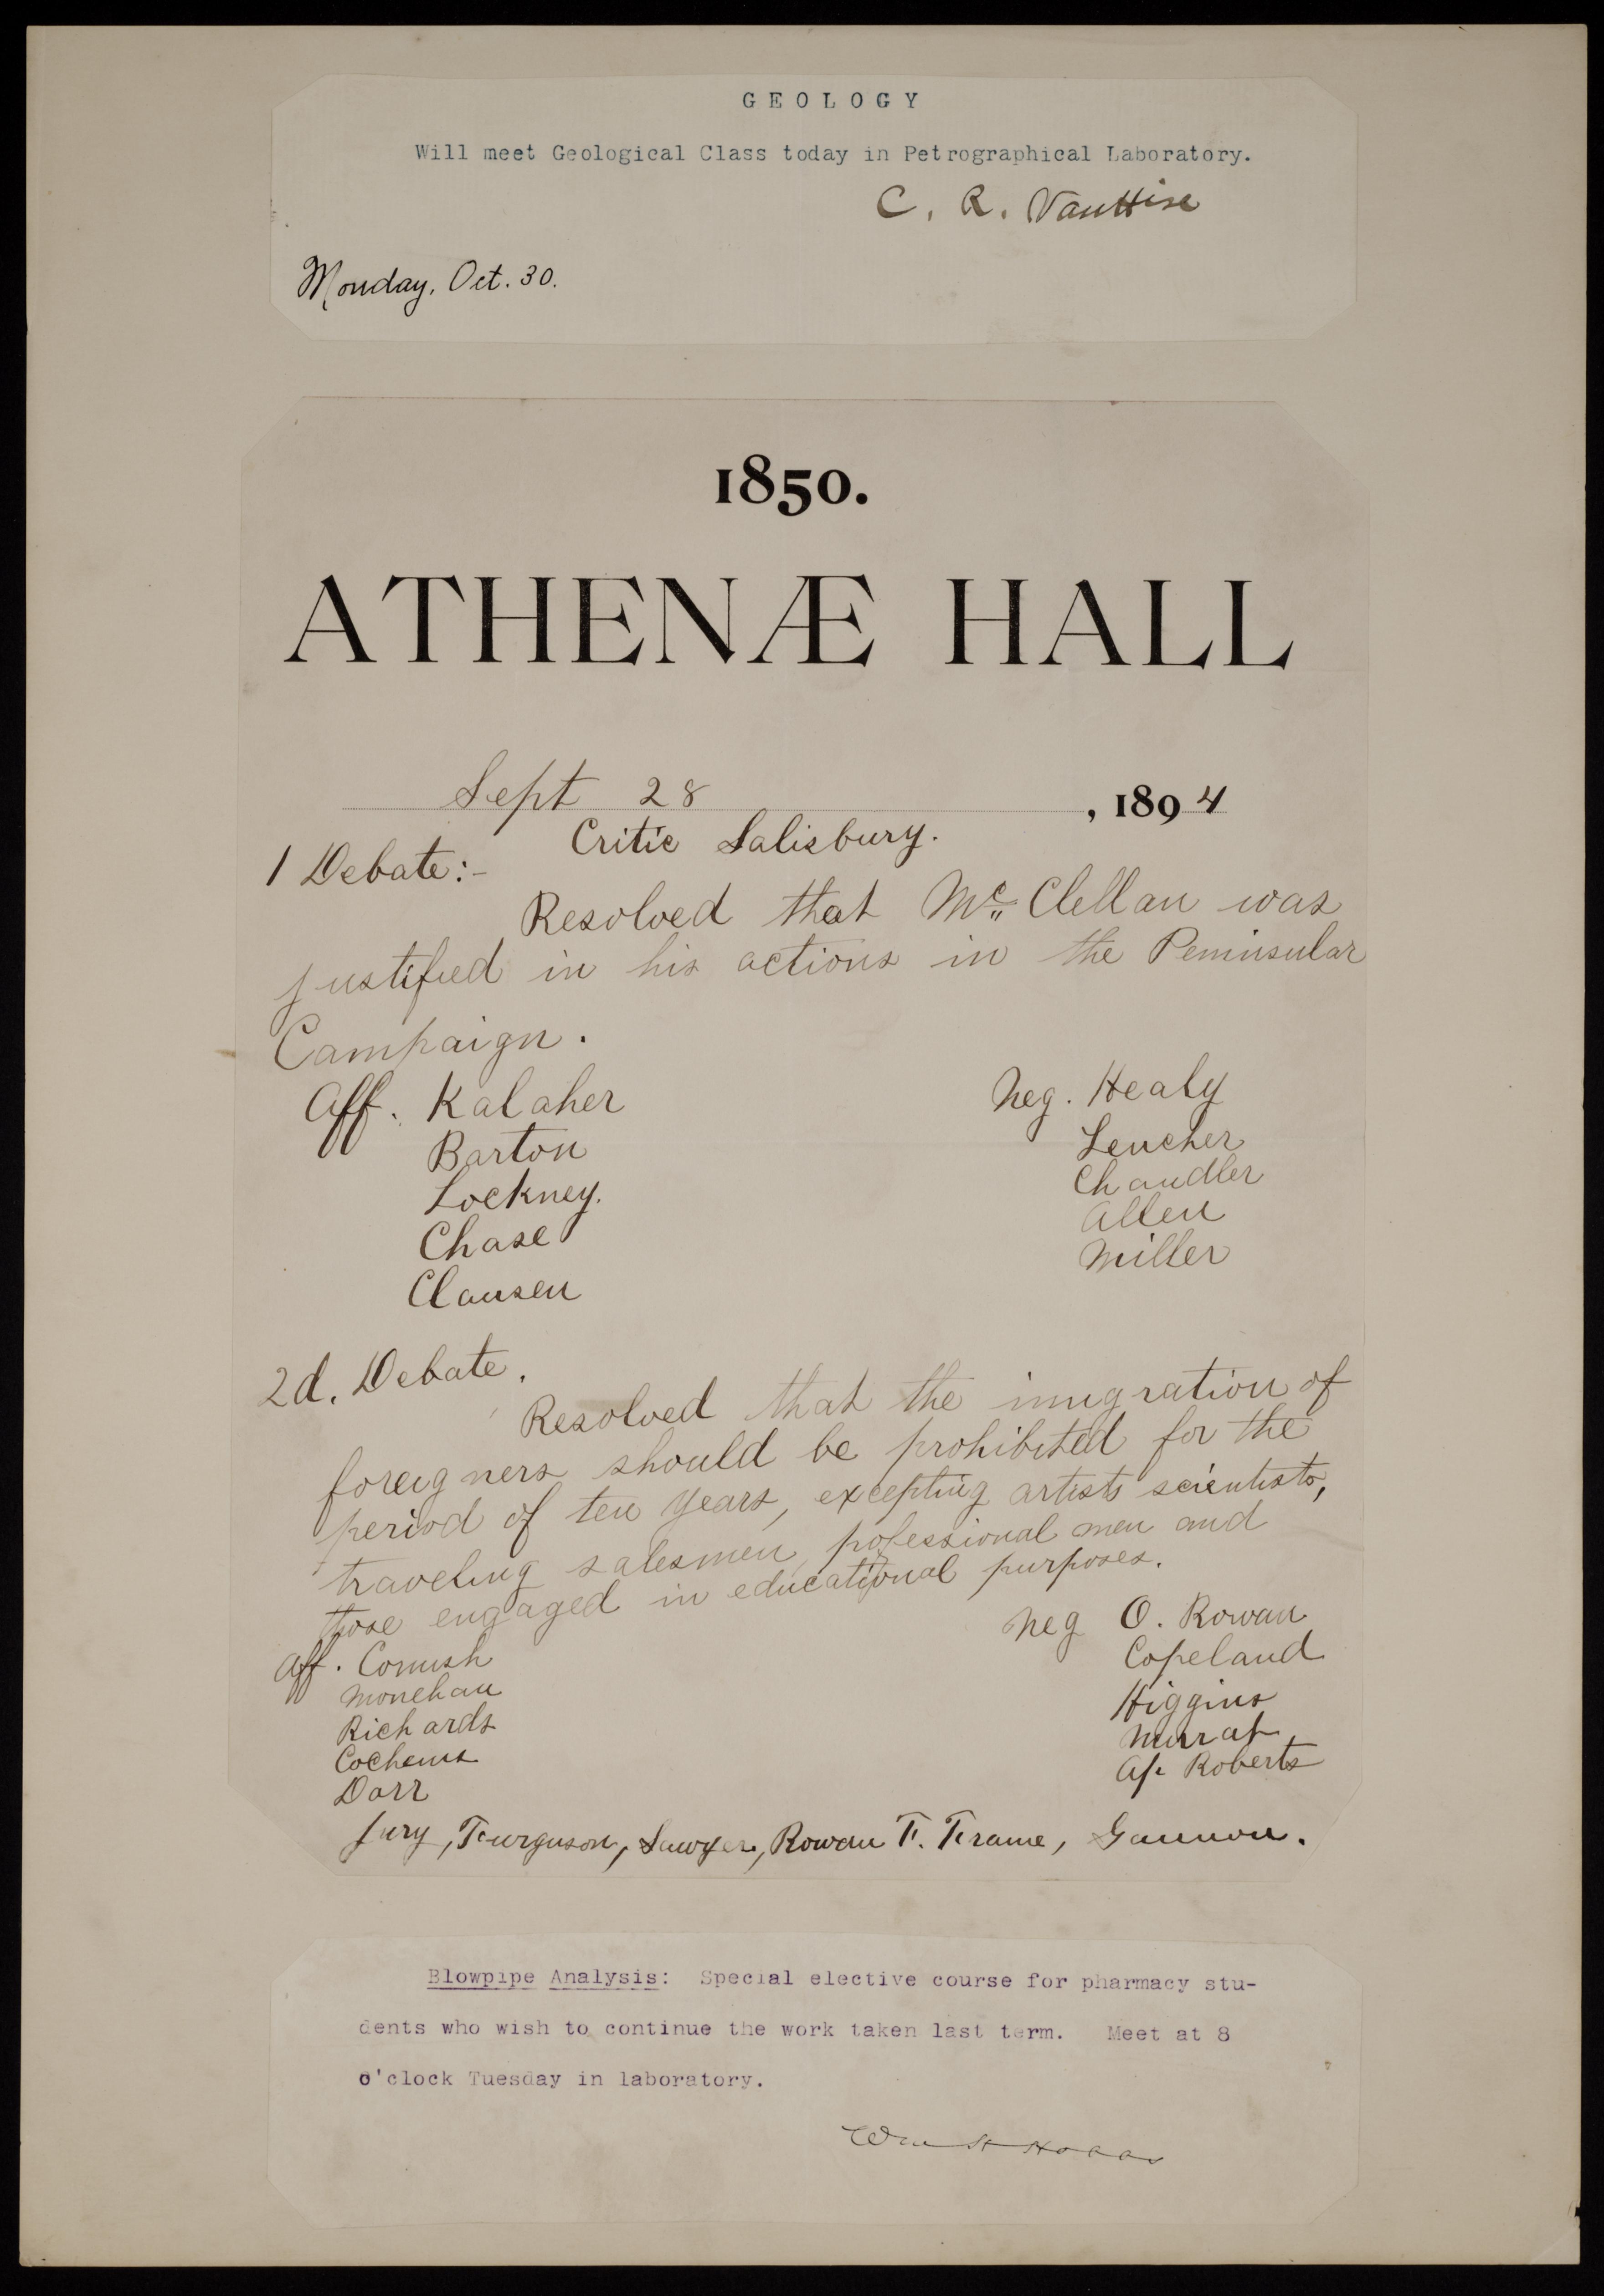 GEOLOGY
Will meet Geological Class today in Petrographical Laboratory.
C. R. VanHise
Monday, Oct. 30.
1850.
ATHENÆ HALL
Sept 28, 1894
Critic Salisbury.
1 Debate:-
Resolved that Mc Clellan was
justified in his actions in the Peninsular
Campaign.
Aff. Kalaher
Barton
Lockney.
Chase
Clausen
Neg. Healy
Leucher
Chandler
Allen
Miller
2d. Debate.
Resolved that the imigration of
foreigners should be prohibited for the
period of ten years, excepting artists scientists,
traveling salesmen, pofessional men and
those engaged in educational purposes.
Aff. Cornish
Monehan
Richards
Cochems
Dorr
Neg O. Rowan
Copeland
Higgins
Murat
Ap. Roberts
Jury, Furguson, Sawyer, Rowan F. Frame, Gannon.
Blowpipe Analysis: Special elective course for pharmacy stu-
dents who wish to continue the work taken last term. Meet at 8
o'clock Tuesday in laboratory.
Wm H Hobbs